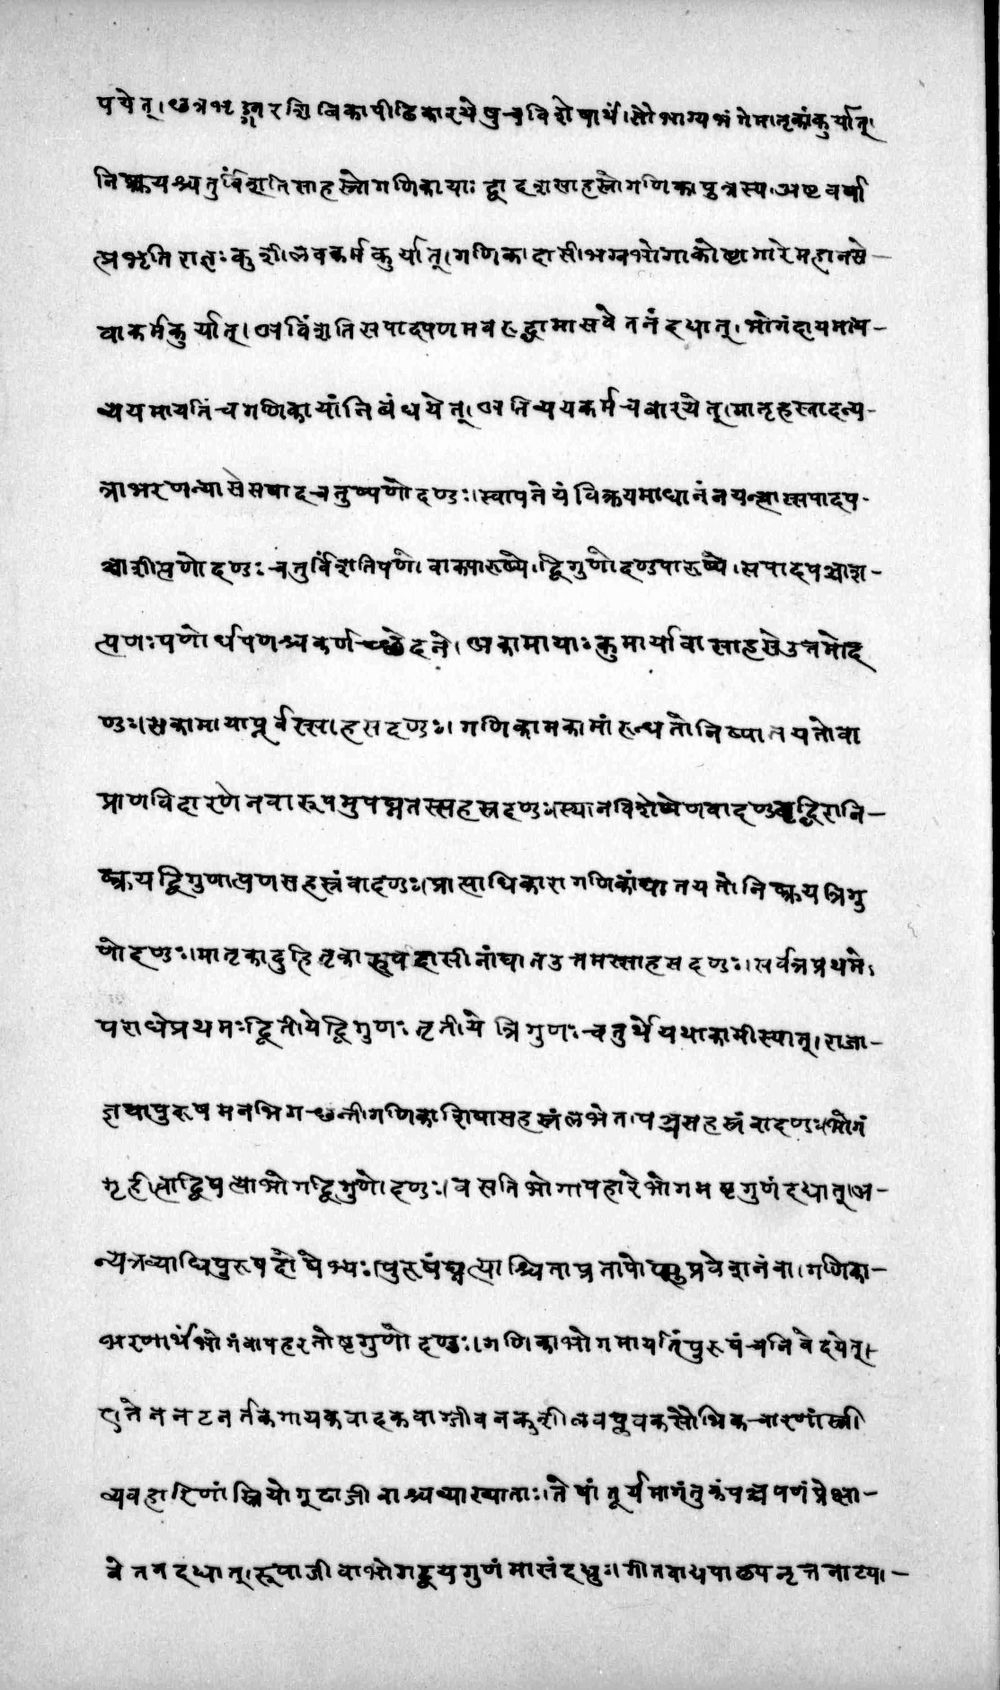 पयेत्।छत्रभृङ्गारशिबिकापीठिकारथेषुचविशेषार्थं।सौभाग्यभंगेमातृकांकुर्यात्।
निष्क्रयश्चतुर्विंशतिसाहस्रोगणिकायाः द्वादशसाहस्रोगणिकापुत्रस्य।अष्टवर्षा
त्प्रभृतिराज्ञःकुशीलवकर्मकुर्यात्।गणिकादासीभग्नभोगाकोष्ठागारेमहानसे—
वाकर्मकुर्यात्।अविंशतिसपादपणमवरुद्धामासवेतनंदद्यात्।भोगंदायमाय—
व्ययमायतिंचगणिकायांनिबंधयेत्।अतिव्ययकर्मचवारयेत्।मातृहस्तादन्य-
त्राभरणन्यासेसपादचतुष्पणोदण्डः।स्वापतेयंविक्रयमाधानंनयन्त्यास्सपादप-
ञ्चाशीत्पणोदण्डःचतुर्विंशतिपणो वाक्पारुष्ये।द्विगुणोदण्डपारुष्ये।सपादपञ्चाश—
त्पणःपणोर्धपणश्चकर्णच्छेदने।अकामायाःकुमार्यावासाहसेउत्तमोद
ण्डः।सकामायापूर्वस्साहसदण्डः। गणिकामकामांरुन्धतोनिष्पातयतोवा
प्राणविदारणेनवारूपमुपघ्नतस्सहस्रदण्डः।स्थानविशेषेणवादण्डवृद्धिरानि—
ष्क्रयद्विगुणात्पणसहस्रंवादण्डः।प्राप्ताधिकारागणिकांघातयतोनिष्क्रयत्रिगु
णोदण्डः।मातृकादुहितृकारूपदासीनांघातउत्तमस्साहसदण्डः।सर्वत्रप्रथमे।
पराधेप्रथमःद्वितीयेद्विगुणः तृतीये त्रिगुणःचतुर्थेयथाकामीस्यात्।राजा—
ज्ञयापुरुषमनभिगच्छन्तीगणिकाशिफासहस्रंलभेत।पञ्चसहस्रंवादण्डः।भोगं
गृहीत्वाद्विषत्याभोगद्विगुणोदण्डः। वसतिभोगापहारेभोगमष्टगुणंदद्यात्।अ—
न्यत्रव्याधिपुरुषदोषेभ्यः।पुरुषंघ्नत्याश्चिताप्रतापोप्सुप्रवेशनंवा।गणिका—
भरणार्थंभोगंवापहरतोष्टगुणोदण्डः।गणिकाभोगमायतिंपुरुषंचनिवेदयेत्।
एतेननटनर्तकगायकवादकवाग्जीवनकुशीलवप्लवकसौभिकचारणांस्त्री
व्यवहारिणां स्त्रियोगूढाजीवाश्चव्याख्याताः।तेषांतूर्यमागंतुकंपञ्चपणंप्रेक्षा—
वेतनंदद्यात्।रूपाजीवाभोगद्वयगुणंमासंदद्युः।गीतवाद्यपाठ्यनृत्तनाट्या।—